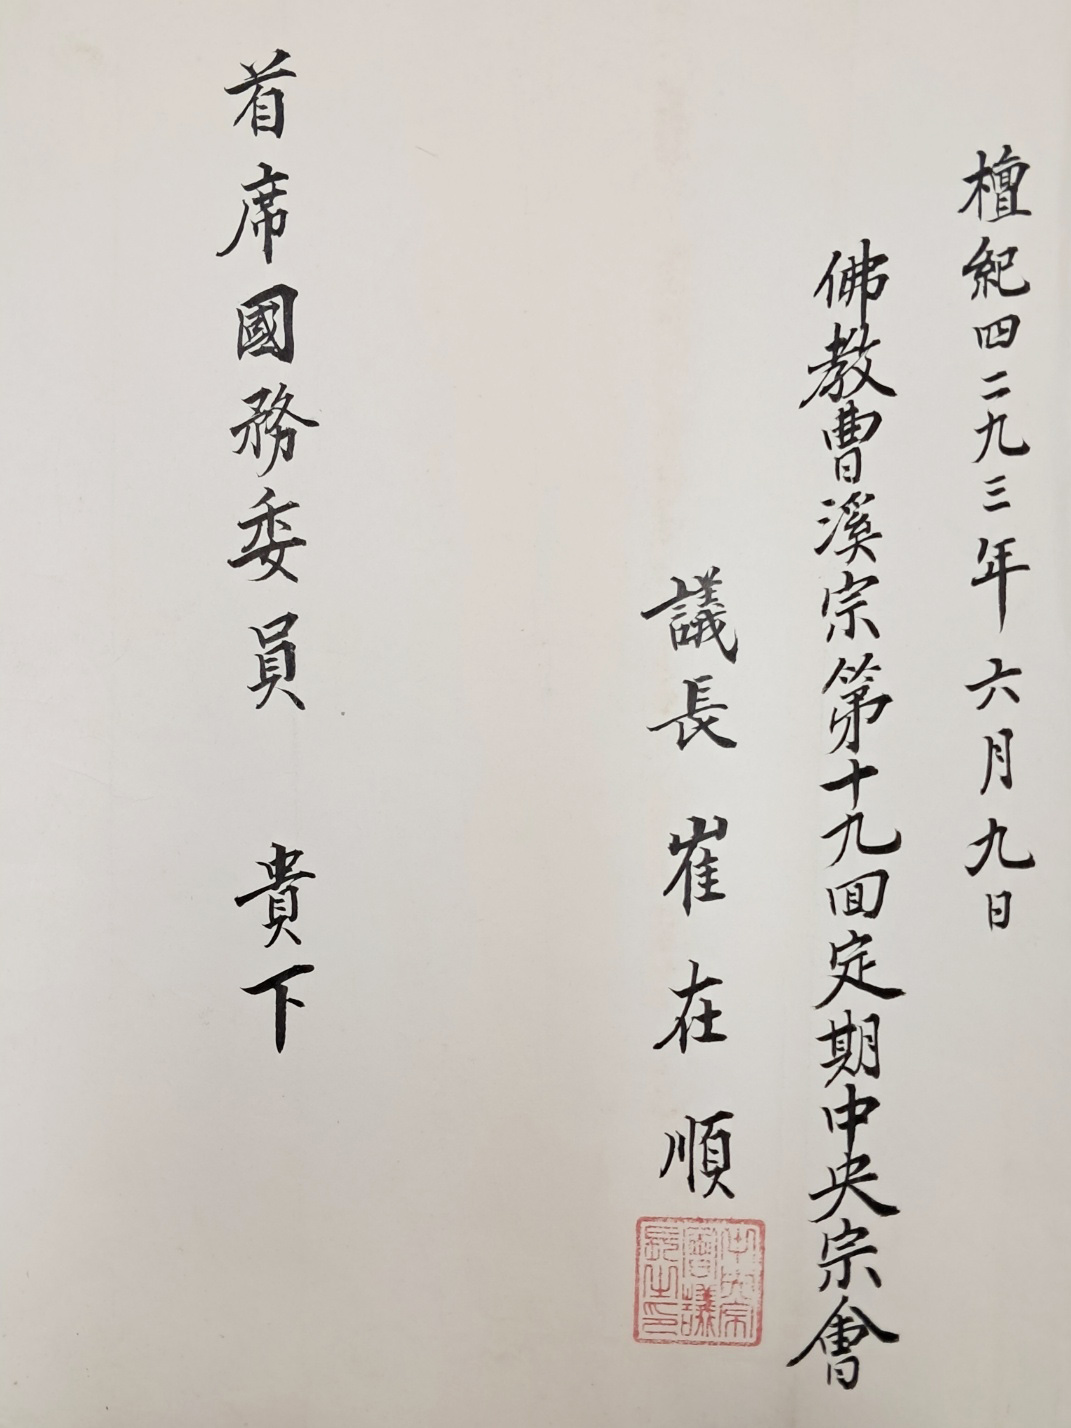 檀紀四二九三年六月九日
佛教曹溪宗第十九回定期中央宗會
議長 崔在順
中央宗會議長之印
首席國務委員 貴下